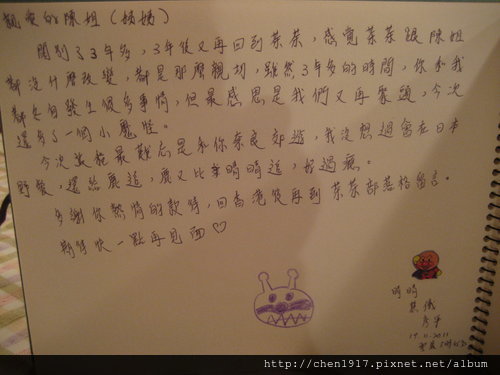 親愛的陳姐(媽媽)
闊別了3年多,3年後又再回到菜菜,感覺菜菜跟陳姐
都沒什麼改變,都是那麼親切,雖然3年多的時間,你和我
都各自發生很多事情,但最感恩是我們又再聚頭,今次
還多了一個小魔怪。
今次旅程最難忘是和你奈良郊遊,我沒想過會在日本
野餐,還給鹿追,鹿又比
晴晴追,好過癮。
多謝你熱情的款待,回香港後再到菜菜部落格留言。
期待快一點再見面♡
晴晴
http://chen1917.pixnet.net/album